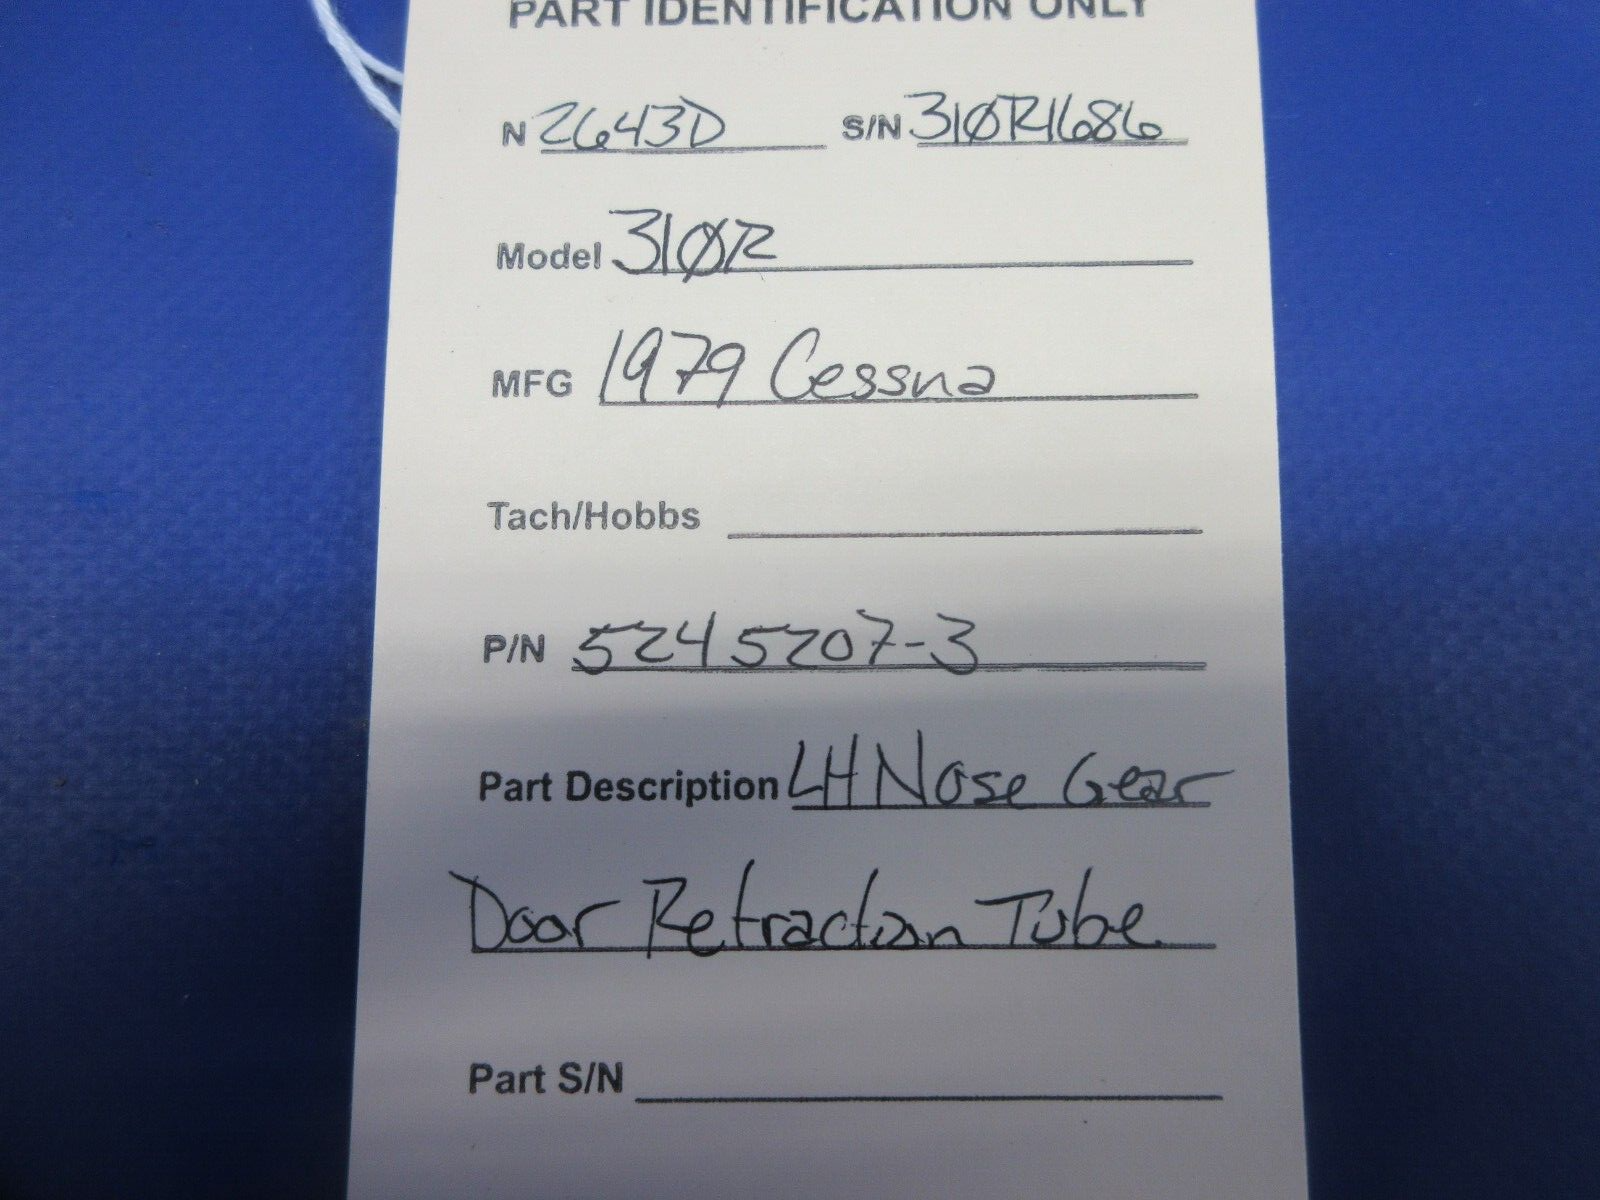 PART IDENTIFICATION ONLY
N 2643D S/N 310R1686
Model 310R
MFG 1979 Cessna
Tach/Hobbs
P/N 5245207-3
Part Description LH Nose Gear
Door Retraction Tube
Part S/N